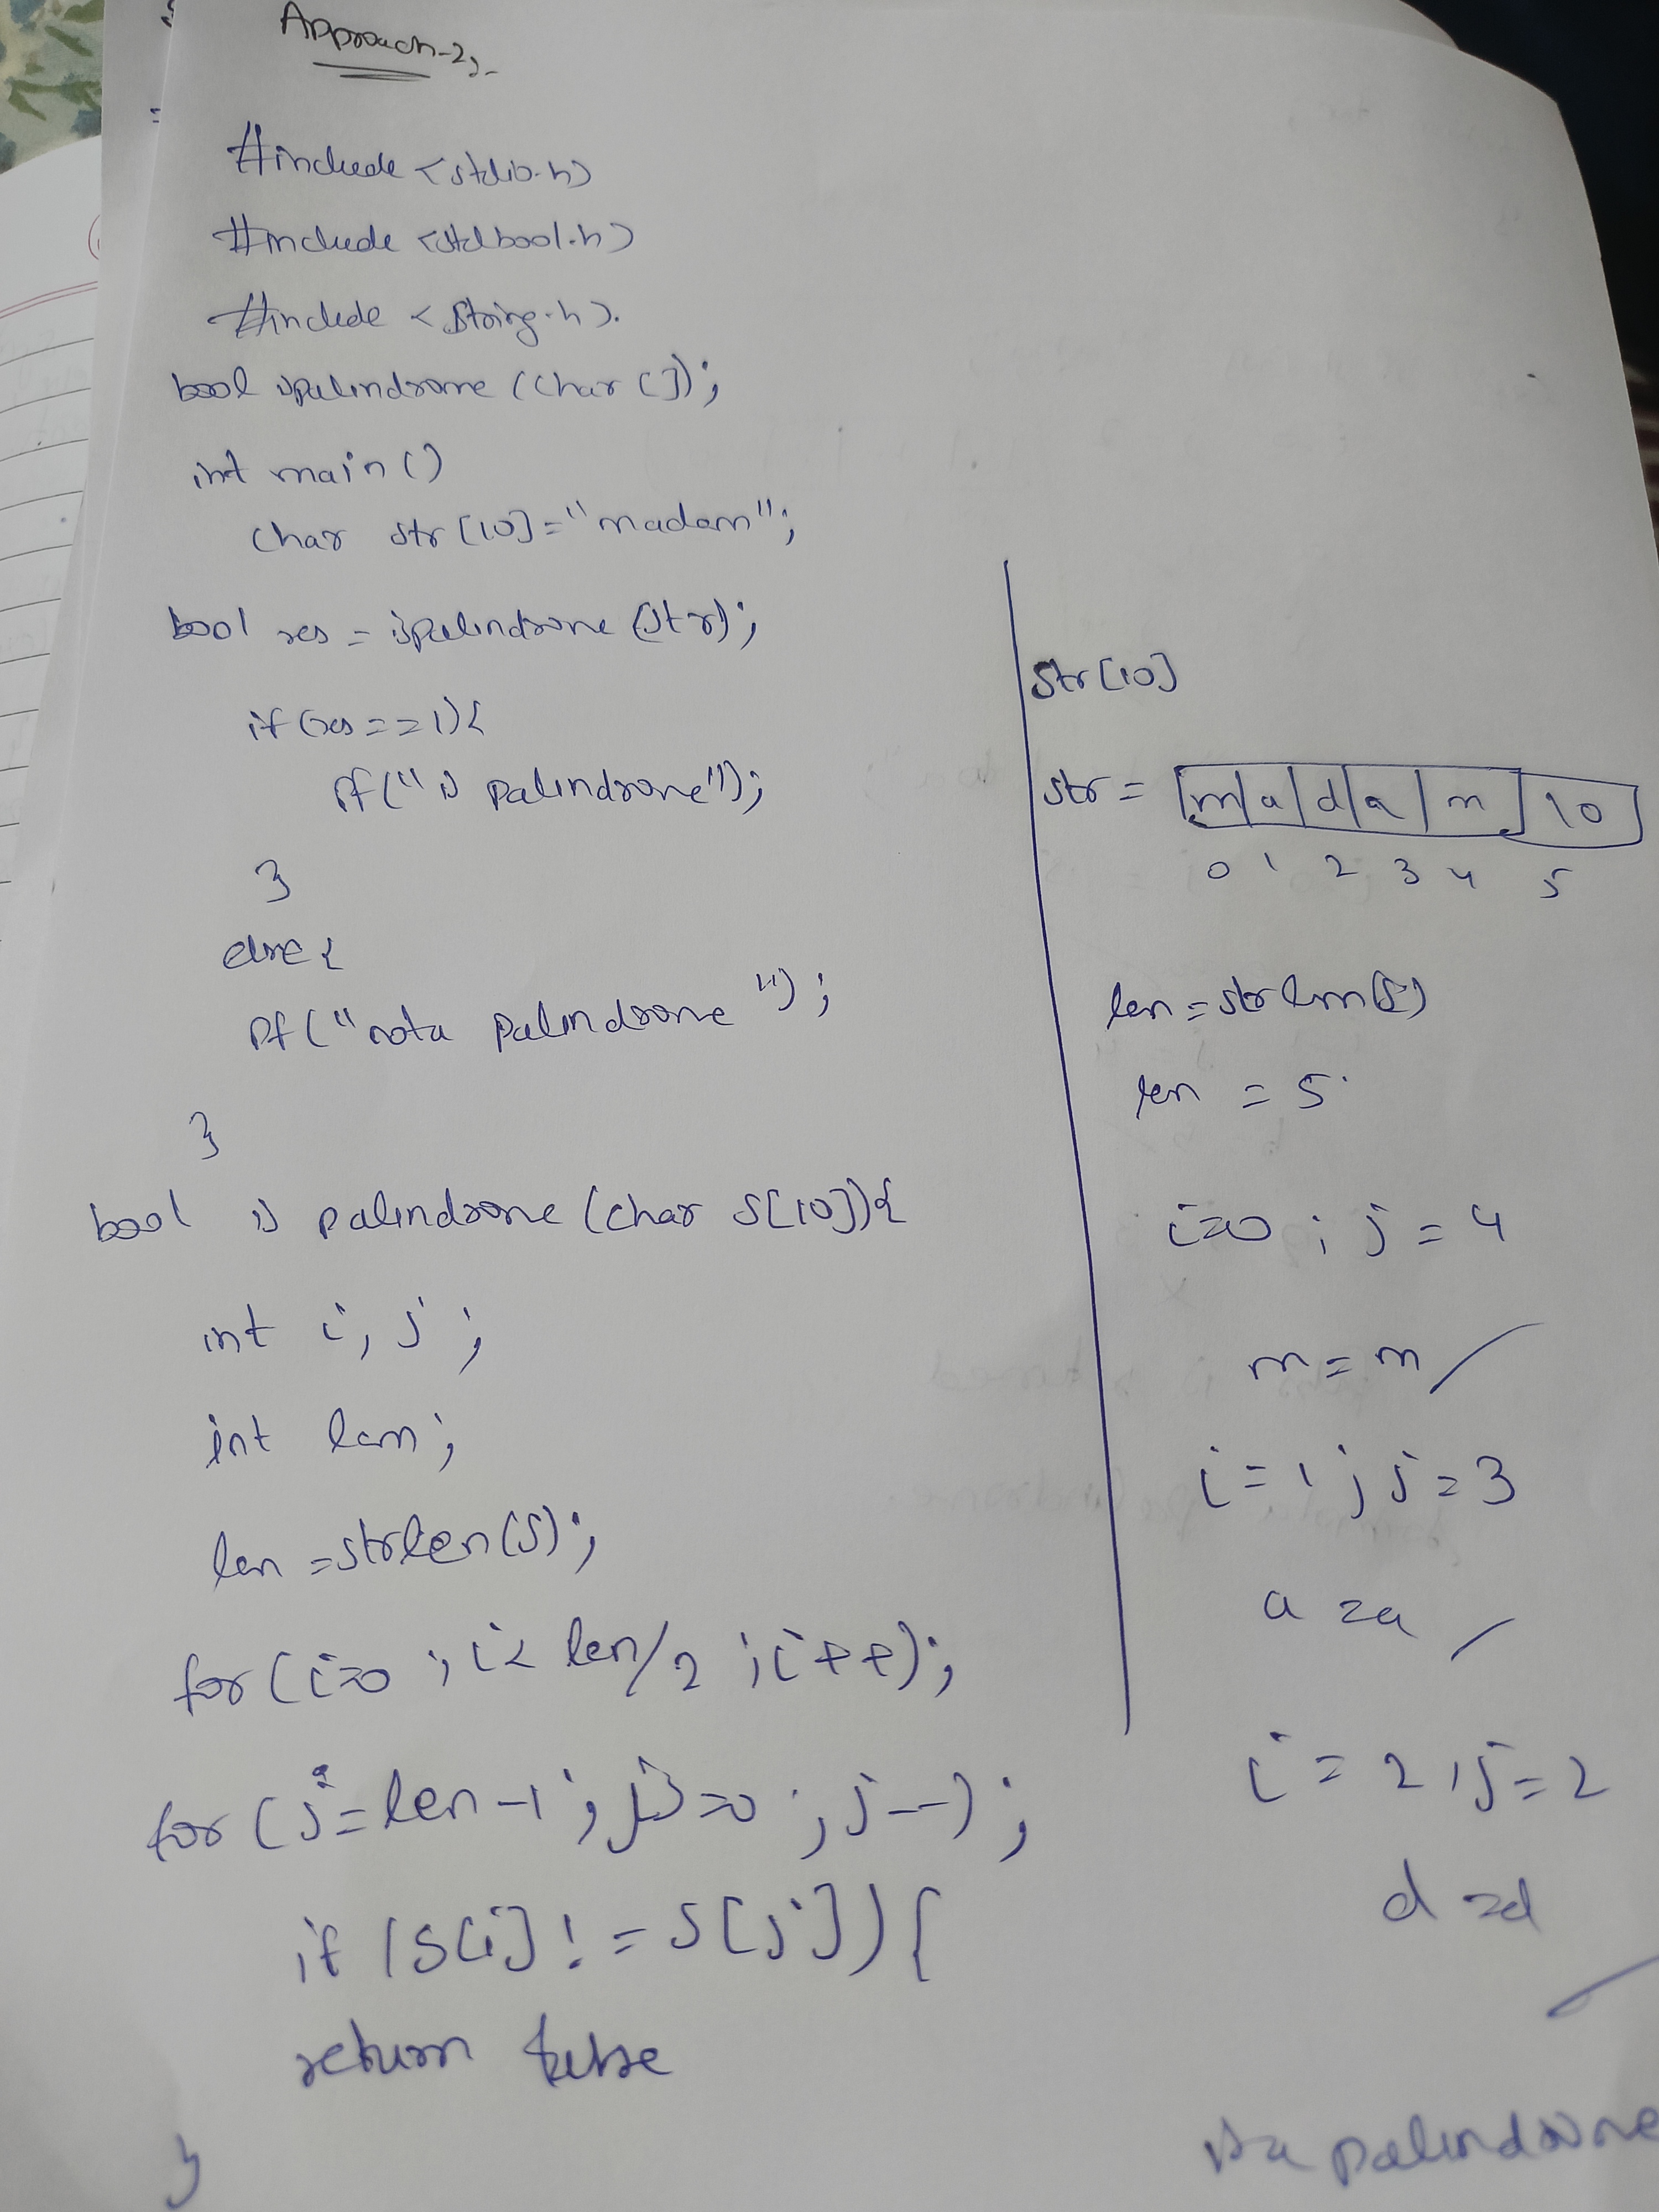 Approach-2,-
#include <stdio.h>
#include <stdbool.h>
#include <string.h>.
bool ispalindrome (char []);
int main()
char str[10]="madam";
bool res = ispalindrome (str);
if(res==1){
Pf("is palindrome");
}
else{
Pf("not a palindrome");
}
bool is palindrome (char s[10]){
int i, j;
int len;
len =strlen(s);
for(i=0; i< len/2 ;i++);
for (j=len-1; j>=0 ; j--);
if (s[i]!=s[j]){
return false
}
str[10]
str = m a d a m \0
0 1 2 3 4 5
len = strlen(s)
len = 5
i=0 ; j=4
m=m
i=1; j=3
a=a
i=2, j=2
d=d
is a palindrome